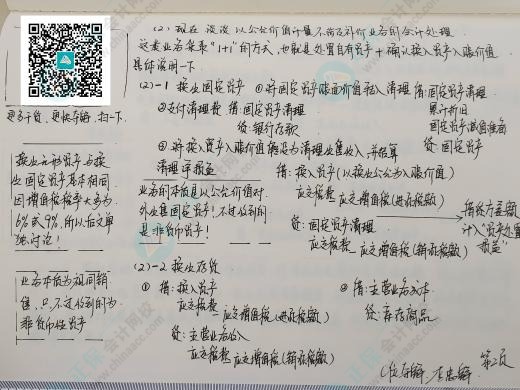 (2) 现在谈谈以公允价值计量不涉及补价业务的会计处理
这类业务按照“1+1”的方式,也就是处置自有资产+确认换入资产入账价值
具体说明一下
(2)-1 换出固定资产 ①将固定资产账面价值转入清理 借:固定资产清理
累计折旧
固定资产减值准备
贷:固定资产
②支付清理费 借:固定资产清理
贷:银行存款
③将换入资产入账价值确认为清理收入,并结算
清理净损益
借:换入资产(以换入公允为入账价值)
应交税费 应交增值税(进项税额)
贷:固定资产清理
应交税费 应交增值税(销项税额)
借贷方差额
计入“资产处置
损益”
更多干货,更快存储,扫一下
换出无形资产与换
出固定资产基本相同
因增值税税率大多为
6%或9%,所以后文单
独讨论!
业务本质是以公允价值对
外出售固定资产!不过收到的
是非货币资产!
(2)-2 换出存货
①借:换入资产
应交税费 应交增值税(进项税额)
贷:主营业务收入
应交税费 应交增值税(销项税额)
②借:主营业务成本
贷:库存商品
业务本质为视同销
售,只不过收到的为
非货币性资产
第2页
正保会计网校
www.chinaacc.com